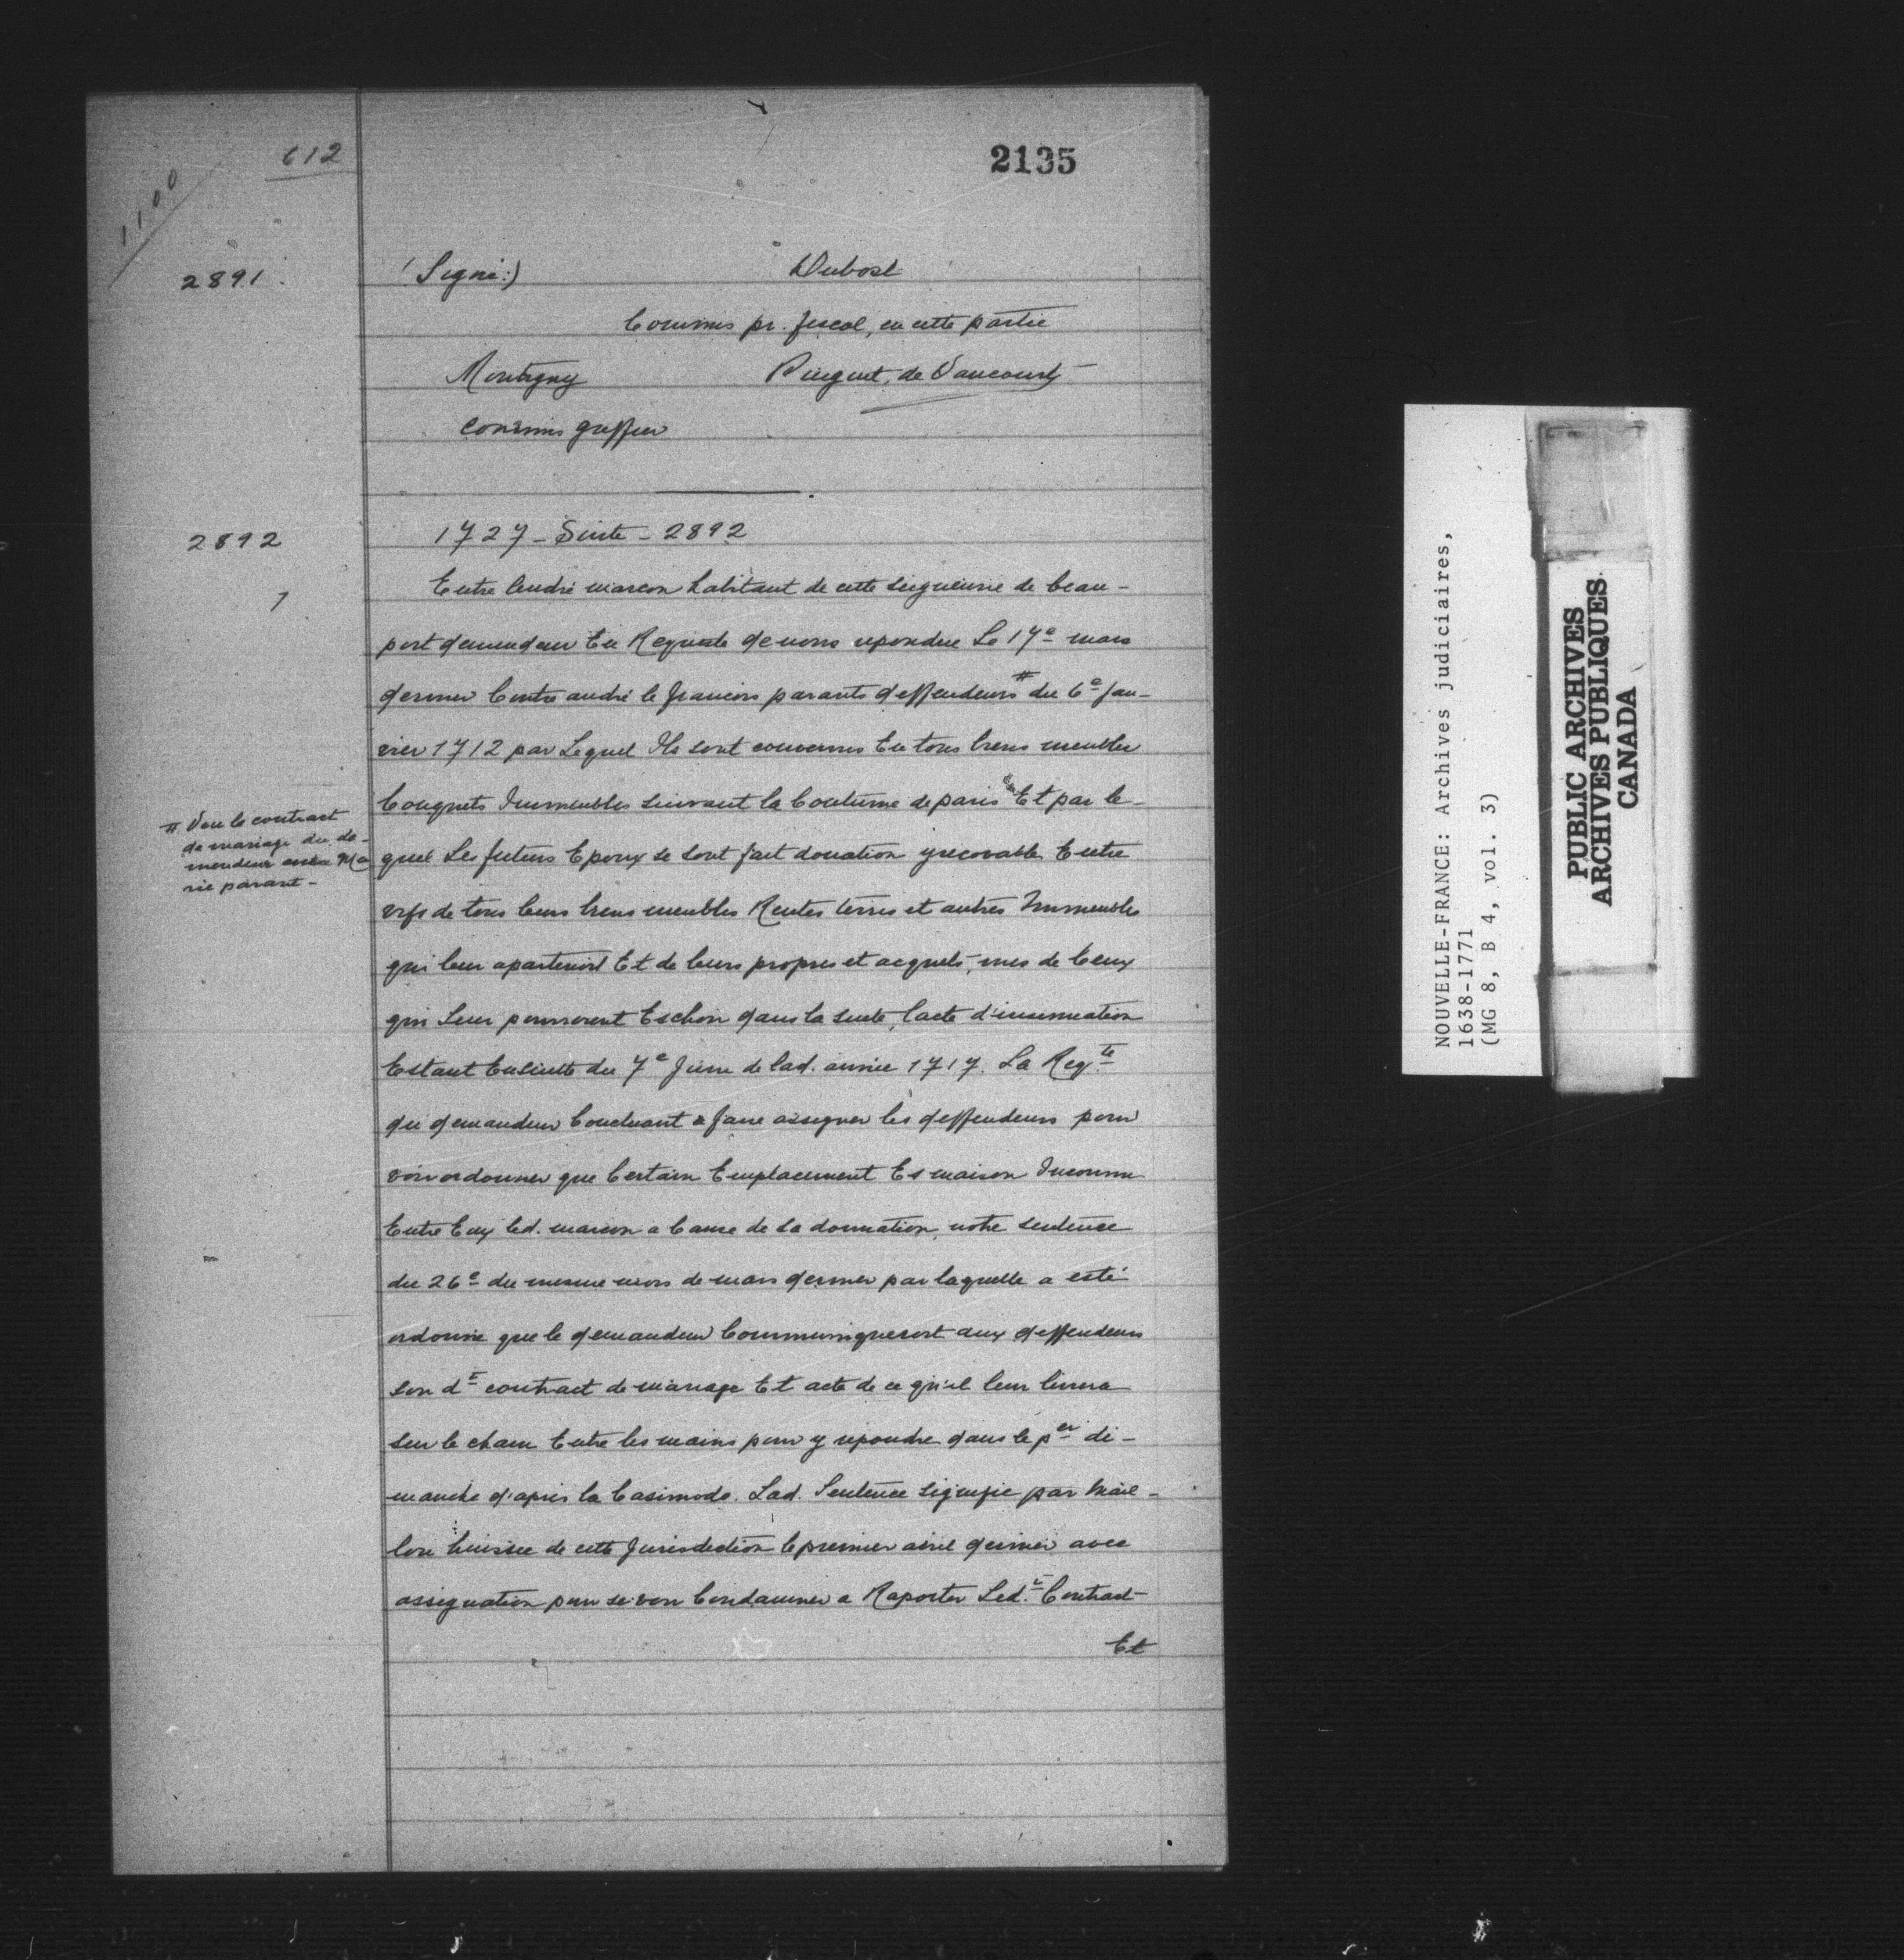 612
1100
2135
2891.
(Signé:) Dubost
Commis pr. fiscal, en cette partie
Montigny Pinguet, de Vaucourt
commis greffier
2892
1727 - Suite - 2892
1
Entre André marcou habitant de cette seigneurie de beau-
port demandeur En Requeste de nous repondue Le 17e mars
dernier Contre andré le francois parants deffendeurs # du 6e Jan-
vier 1712 par Lequel Ils sont convenus En tous biens meubles
Conquets Immeubles suivant la Coutume de paris Et par le-
quel Les futurs Epoux se sont fait donation yrecovable Entre
vifs de tous leurs biens meubles Rentes terres et autres Immeubles
qui leur apartenoist Et de leurs propres et acquets, mes de Ceux
qui Leur pourroient Eschoir dans la suite, lacte d'insinuation
Estant Ensuitte du 7e Juin de lad. année 1717. La Reqte
du demandeur Concluant a faire assigner les deffendeurs pour
voir ordonner que Certain Emplacement Es maison Incomm
Entre Eux led. marcou a Cause de sa donnation, notre sentence
du 26e du mesme mois de mars dernier par laquelle a esté
ordonné que le demandeur Communiqueroit aux deffendeurs
son dt contract de mariage Et acte de ce qu'il leur livrera
sur le cham Entre les mains pour y repondre dans le per di-
manche d'apres la Casimodo. Lad. Sentence signifié par mail-
lou huissier de cette Jurisdiction le premier avril dernier avec
assignation pour se voir Condamner a Raporter Led.t Contract
Et
# Veu le contract
de mariage du de-
mendeur Ma
rie parant -
NOUVELLE-FRANCE: Archives judiciaires,
1638-1771
(MG 8, B 4, vol. 3)
PUBLIC ARCHIVES
ARCHIVES PUBLIQUES
CANADA